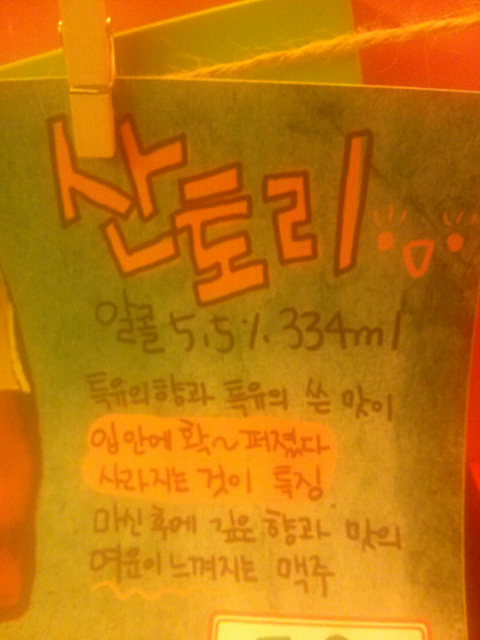 산토리
알콜 5.5%. 334ml
특유의향과 특유의 쓴 맛이
입안에 확~퍼졌다
사라지는 것이 특징
마신후에 깊은 향과 맛의
여운이느껴지는 맥주